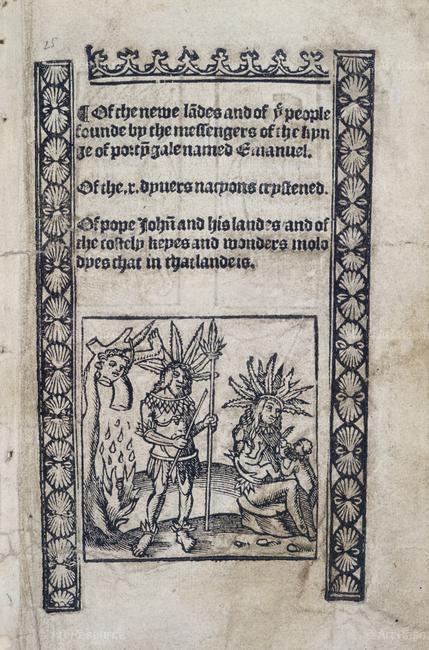 25
¶ Of the newe lādes and of yͤ people
founde by the messengers of the kyn
ge of portȳgale named Emanuel.
Of the .x. dyuers nacyons crystened.
Of pope Johñ and his landes and of
the costely keyes and wonders molo
dyes that in that lande is.